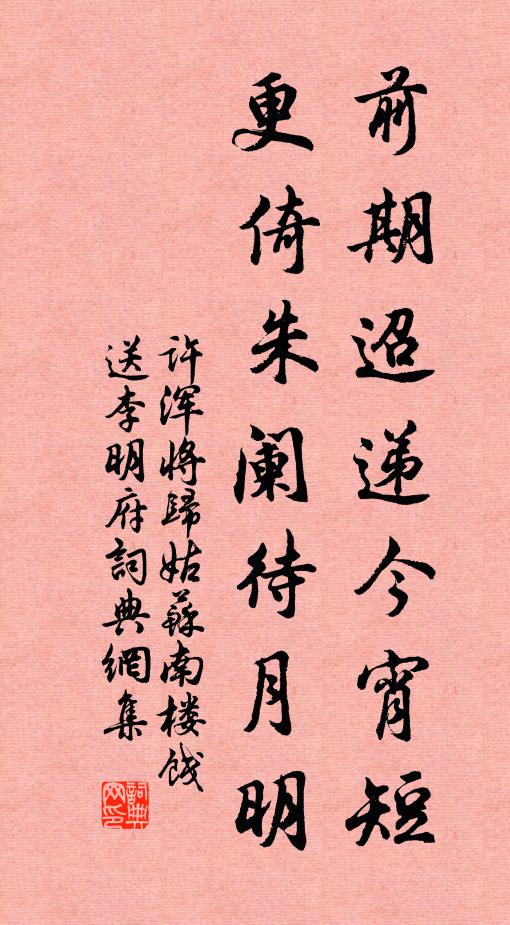 前期迢递今宵短
更倚朱阑待月明
许浑将歸姑蘇南楼饯
送李明府詞典網集
詞典
网印